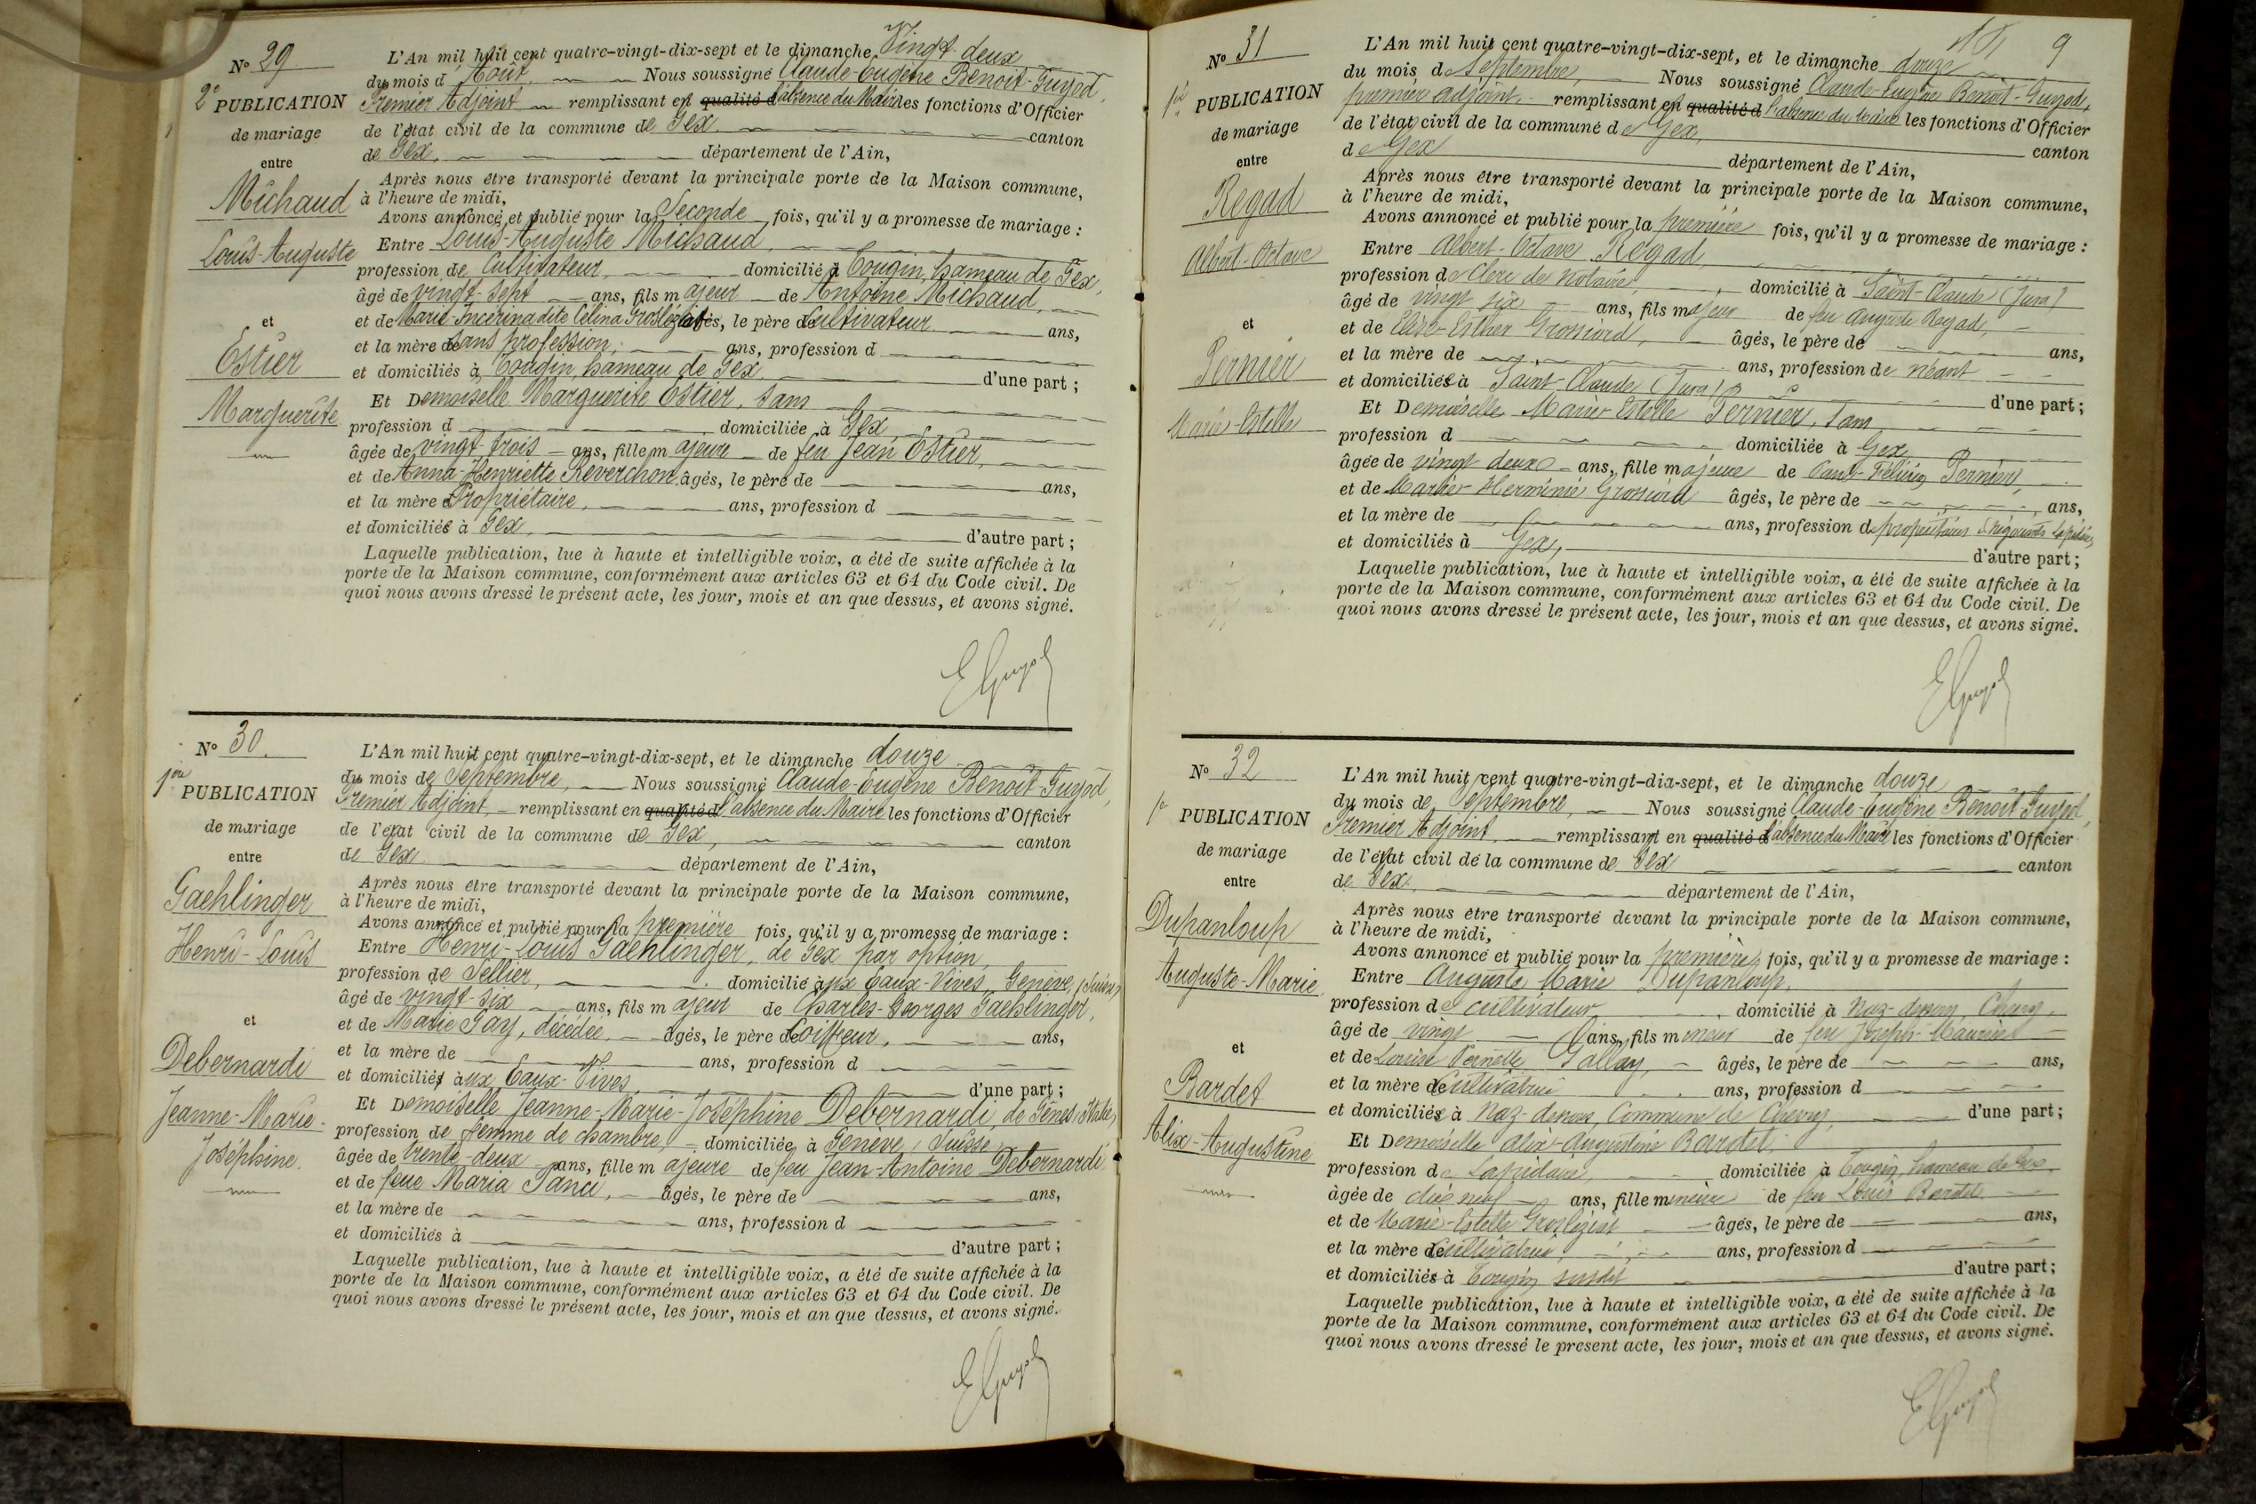 Nº 29
2e PUBLICATION
de mariage
entre
Michaud
Louis-Auguste
et
Estier
Marguerite
L'An mil huit cent quatre-vingt-dix-sept et le dimanche Vingt-deux
du mois d'Août. Nous soussigné Claude-Eugène Benoit-Guyod,
Premier Adjoint remplissant en qualité d l'absence du Maire les fonctions d'Officier
de l'état civil de la commune de Gex. canton
de Gex. département de l'Ain,
Après nous être transporté devant la principale porte de la Maison commune,
à l'heure de midi,
Avons annoncé et publié pour la Seconde fois, qu'il y a promesse de mariage :
Entre Louis-Auguste Michaud,
profession de Cultivateur, domicilié à Tougin, hameau de Gex,
âgé de vingt-sept ans, fils majeur de Antoine Michaud,
et de Marie dite Célina âgés, le père de Cultivateur ans,
et la mère de sans profession, ans, profession d
et domiciliés à Tougin, hameau de Gex d'une part ;
Et Demoiselle Marguerite Estier, sans
profession d domiciliée à Gex
âgée de vingt-trois ans, fille majeure de feu Jean Estier,
et de Anna-Henriette Reverchon âgés, le père de ans,
et la mère Propriétaire, ans, profession d
et domiciliés à Gex, d'autre part ;
Laquelle publication, lue à haute et intelligible voix, a été de suite affichée à la
porte de la Maison commune, conformément aux articles 63 et 64 du Code civil. De
quoi nous avons dressé le présent acte, les jour, mois et an que dessus, et avons signé.
E Guyod
Nº 30.
1ère PUBLICATION
de mariage
entre
Gaehlinger
Henri-Louis
et
Debernardi
Jeanne-Marie-
Joséphine.
L'An mil huit cent quatre-vingt-dix-sept, et le dimanche douze
du mois de Septembre, Nous soussigné Claude-Eugène Benoit-Guyod,
Premier Adjoint, remplissant en qualité d l'absence du Maire les fonctions d'Officier
de l'état civil de la commune de Gex, canton
de Gex département de l'Ain,
Après nous être transporté devant la principale porte de la Maison commune,
à l'heure de midi,
Avons annoncé et publié pour la première fois, qu'il y a promesse de mariage :
Entre Henri-Louis Gaehlinger, de Gex par option,
profession de Sellier, domicilié aux Eaux-Vives, Genève, (Suisse)
âgé de vingt-six ans, fils majeur de Charles-Georges Gaehlinger,
et de Marie Gay, décédée, âgés, le père de Coiffeur, ans,
et la mère de ans, profession d
et domiciliés aux Eaux-Vives, d'une part ;
Et Demoiselle Jeanne-Marie-Joséphine Debernardi, de Gênes, (Italie)
profession de femme de chambre, domiciliée à Genève, (Suisse)
âgée de trente-deux ans, fille majeure de feu Jean-Antoine Debernardi
et de feue Maria Panci, âgés, le père de ans,
et la mère de ans, profession d
et domiciliés à d'autre part ;
Laquelle publication, lue à haute et intelligible voix, a été de suite affichée à la
porte de la Maison commune, conformément aux articles 63 et 64 du Code civil. De
quoi nous avons dressé le présent acte, les jour, mois et an que dessus, et avons signé.
E Guyod
9
Nº 31
1re PUBLICATION
de mariage
entre
Regad
Albert-Octave
et
Pernier
Marie-Estelle
L'An mil huit cent quatre-vingt-dix-sept, et le dimanche douze
du mois de Septembre, Nous soussigné Claude-Eugène Benoit-Guyod,
premier adjoint, remplissant en qualité d l'absence du Maire les fonctions d'Officier
de l'état civil de la commune de Gex, canton
de Gex département de l'Ain,
Après nous être transporté devant la principale porte de la Maison commune,
à l'heure de midi,
Avons annoncé et publié pour la première fois, qu'il y a promesse de mariage :
Entre Albert-Octave Regad,
profession de Clerc de Notaire, domicilié à Saint-Claude (Jura)
âgé de vingt six ans, fils majeur de feu Auguste Regad,
et de Esther âgés, le père de ans,
et la mère de ans, profession de néant
et domiciliés à Saint-Claude (Jura) d'une part ;
Et Demoiselle Marie Estelle Pernier, sans
profession d domiciliée à Gex
âgée de vingt deux ans, fille majeure de Pernier,
et de Herminie âgés, le père de ans,
et la mère de ans, profession de propriétaires
et domiciliés à Gex, d'autre part ;
Laquelle publication, lue à haute et intelligible voix, a été de suite affichée à la
porte de la Maison commune, conformément aux articles 63 et 64 du Code civil. De
quoi nous avons dressé le présent acte, les jour, mois et an que dessus, et avons signé.
E Guyod
Nº 32
1e PUBLICATION
de mariage
entre
Dupanloup
Auguste-Marie
et
Bardet
Alix-Augustine
L'An mil huit cent quatre-vingt-dix-sept, et le dimanche douze
du mois de Septembre, Nous soussigné Claude-Eugène Benoit-Guyod,
Premier Adjoint, remplissant en qualité d l'absence du Maire les fonctions d'Officier
de l'état civil de la commune de Gex canton
de Gex. département de l'Ain,
Après nous être transporté devant la principale porte de la Maison commune,
à l'heure de midi,
Avons annoncé et publié pour la première fois, qu'il y a promesse de mariage :
Entre Auguste Marie Dupanloup,
profession de cultivateur domicilié à Naz-dessous, Chevry,
âgé de vingt ans, fils mineur de feu Joseph-Maurice
et de Louise Pernette Gallay, âgés, le père de ans,
et la mère de Cultivatrice ans, profession d
et domiciliés à Naz-dessous, Commune de Chevry, d'une part ;
Et Demoiselle Alix-Augustine Bardet,
profession de Lapidaire, domiciliée à Tougin, hameau de Gex,
âgée de dix neuf ans, fille mineure de feu Louis Bardet
et de Marie-Estelle âgés, le père de ans,
et la mère de Cultivatrice, ans, profession d
et domiciliés à Tougin susdit d'autre part ;
Laquelle publication, lue à haute et intelligible voix, a été de suite affichée à la
porte de la Maison commune, conformément aux articles 63 et 64 du Code civil. De
quoi nous avons dressé le présent acte, les jour, mois et an que dessus, et avons signé.
E Guyod